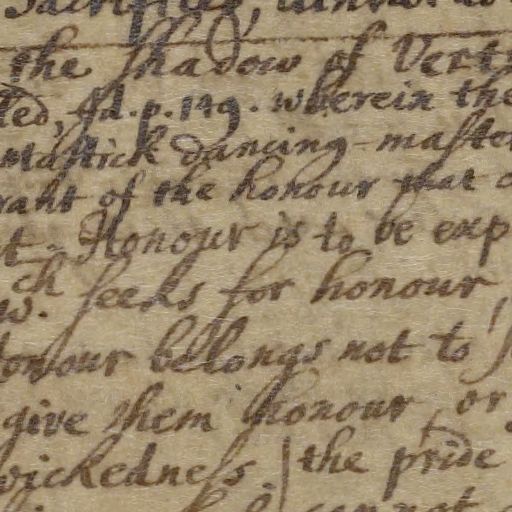 Sacrifices, cannot
the shadow of Vert
led, Id. p. 149. wherein the
Mastick dancing-master
rant of the honour that
t. Honour is to be exp
wch. seeks for honour,
onour bellongs not to
give them honour, or
wickedness. | the pride
cannot